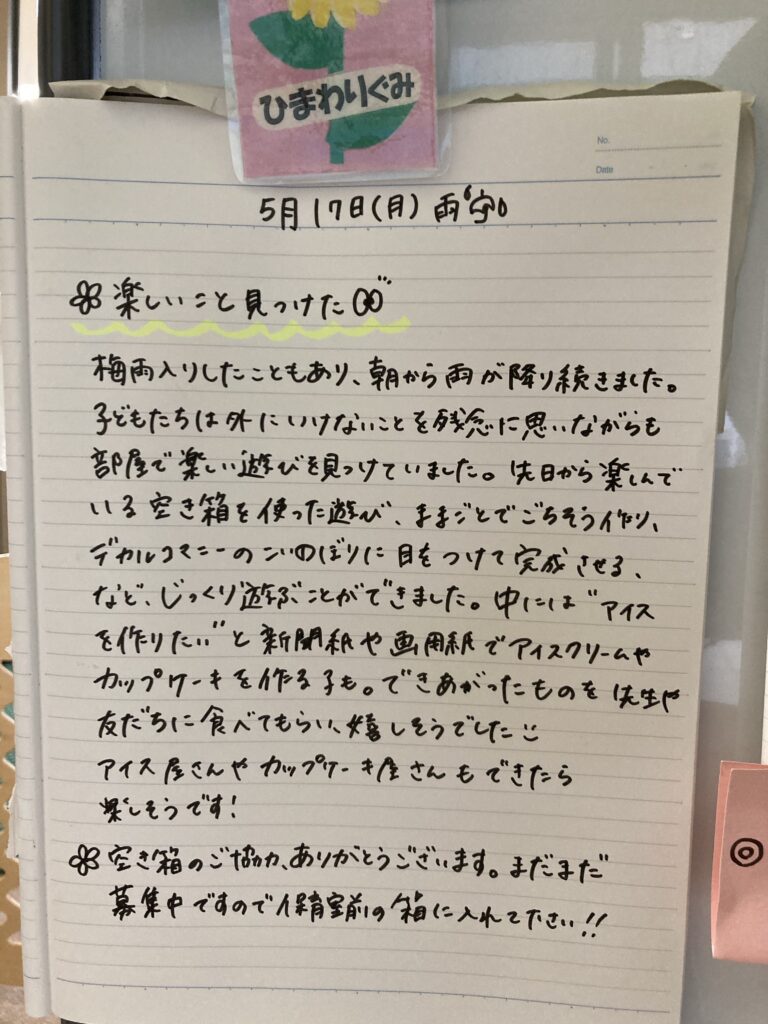 ひまわりぐみ
No.
Date
5月17日(月) 雨
楽しいこと見つけた
梅雨入りしたこともあり、朝から雨が降り続きました。
子どもたちは外にいけないことを残念に思いながらも
部屋で楽しい遊びを見つけていました。先日から楽しんで
いる空き箱を使った遊び、ままごとでごちそう作り、
デカルコマニーのこいのぼりに目をつけて完成させる、
など、じっくり遊ぶことができました。中には"アイス
を作りたい"と新聞紙や画用紙でアイスクリームや
カップケーキを作る子も。できあがったものを先生や
友だちに食べてもらい、嬉しそうでした
アイス屋さんやカップケーキ屋さんもできたら
楽しそうです!
空き箱のご協力、ありがとうございます。まだまだ
募集中ですので保育室前の箱に入れて下さい!!